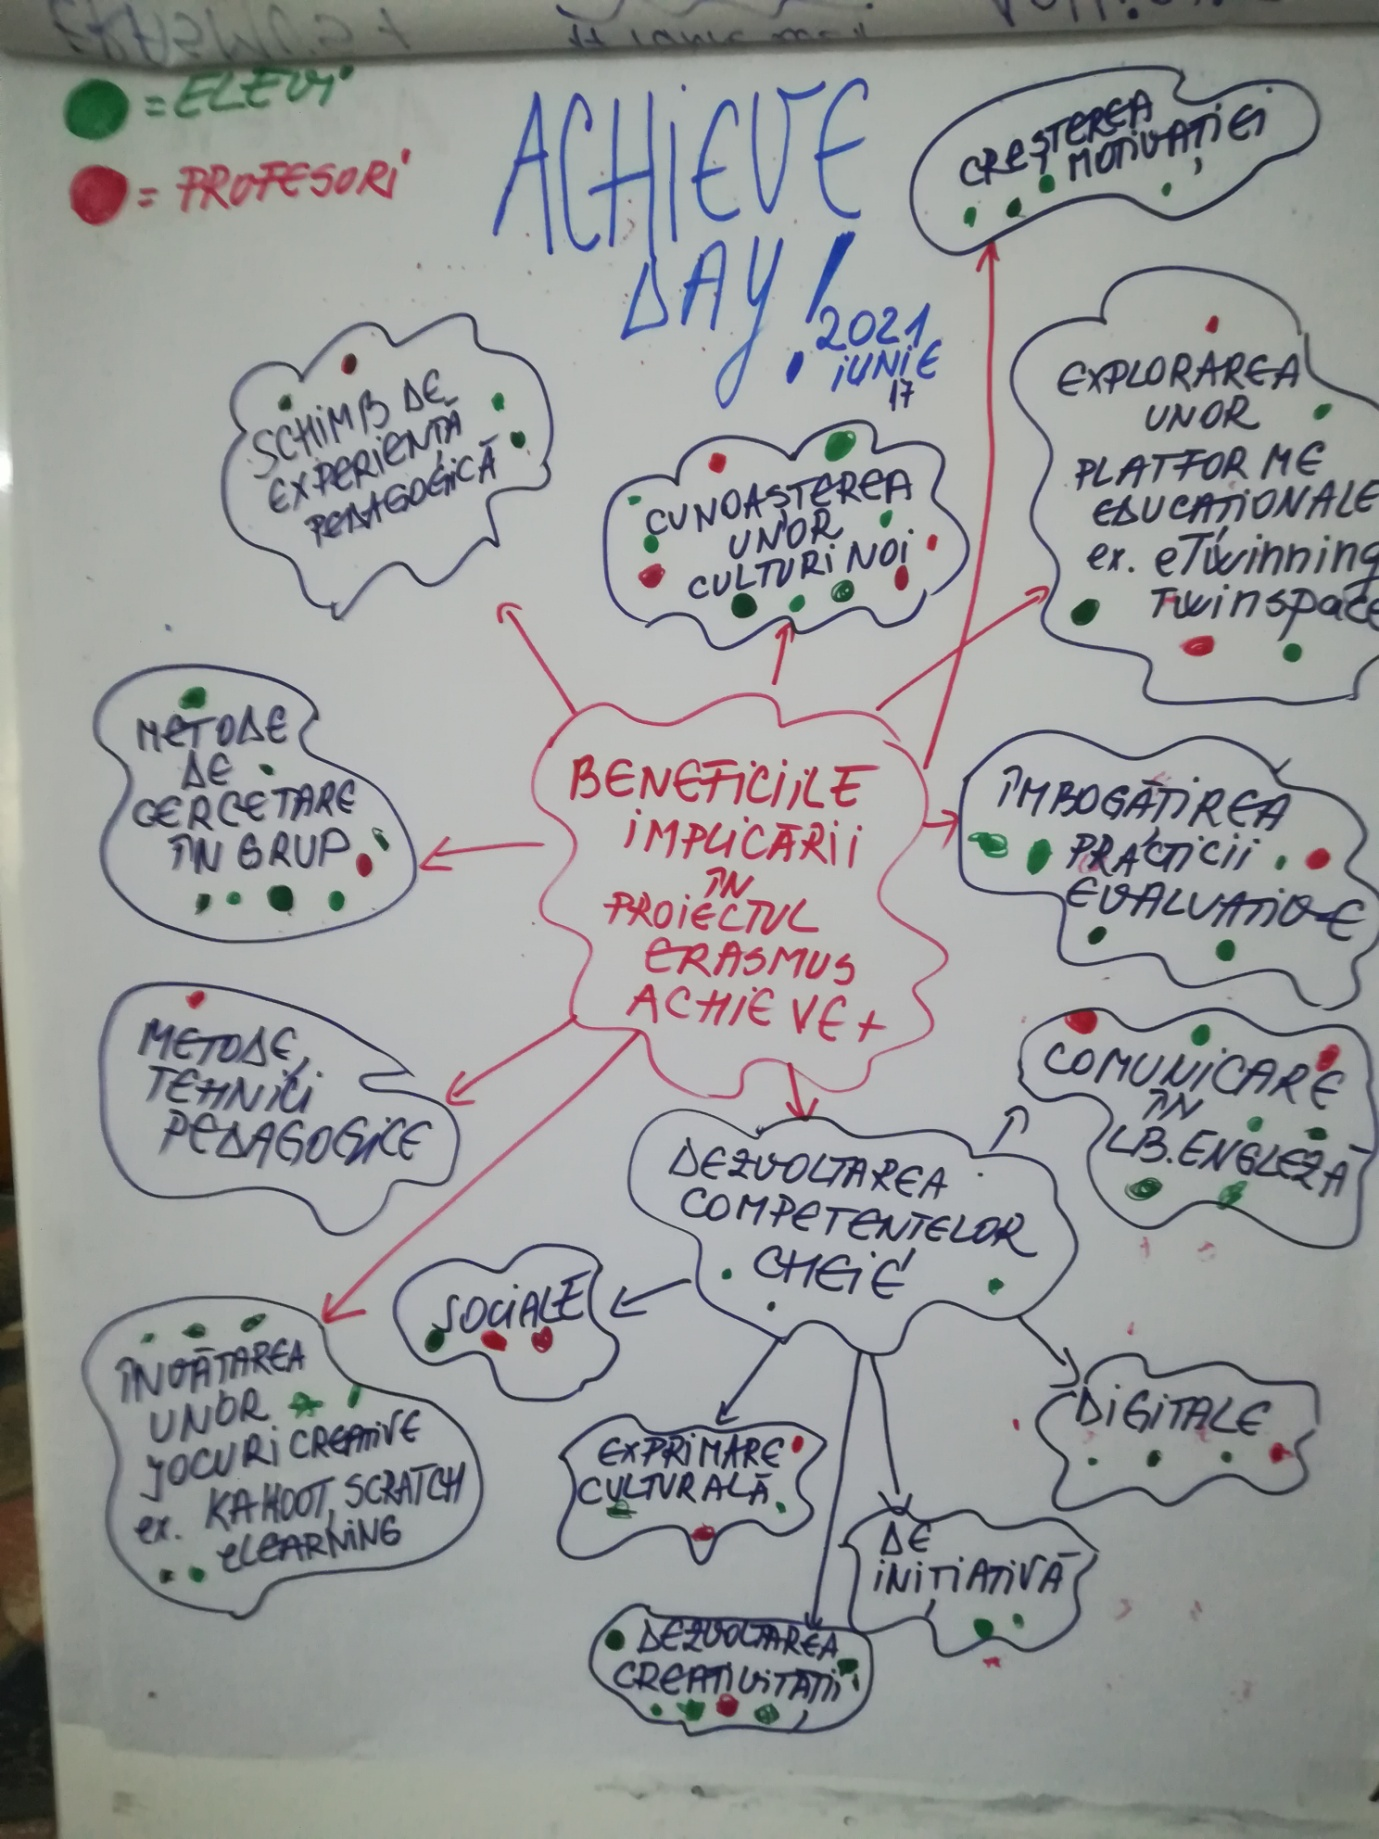 = ELEVI
= PROFESORI
ACHIEVE
DAY!
2021
IUNIE
17
CREȘTEREA
MOTIVAȚIEI
SCHIMB DE
EXPERIENȚĂ
PEDAGOGICĂ
CUNOAȘTEREA
UNOR
CULTURI NOI
EXPLORAREA
UNOR
PLATFORME
EDUCAȚIONALE
ex. eTwinning
Twinspace
METODE
DE
CERCETARE
ÎN GRUP
BENEFICIILE
IMPLICĂRII
ÎN
PROIECTUL
ERASMUS
ACHIEVE+
ÎMBOGĂȚIREA
PRACTICII
EVALUATIVE
METODE,
TEHNICI
PEDAGOGICE
COMUNICARE
ÎN
LB. ENGLEZĂ
DEZVOLTAREA
COMPETENTELOR
CHEIE
SOCIALE
ÎNVĂTAREA
UNOR
JOCURI CREATIVE
ex. KAHOOT, SCRATCH
eLEARNING
EXPRIMARE
CULTURALĂ
DIGITALE
DE
INITIATIVĂ
DEZVOLTAREA
CREATIVITATII